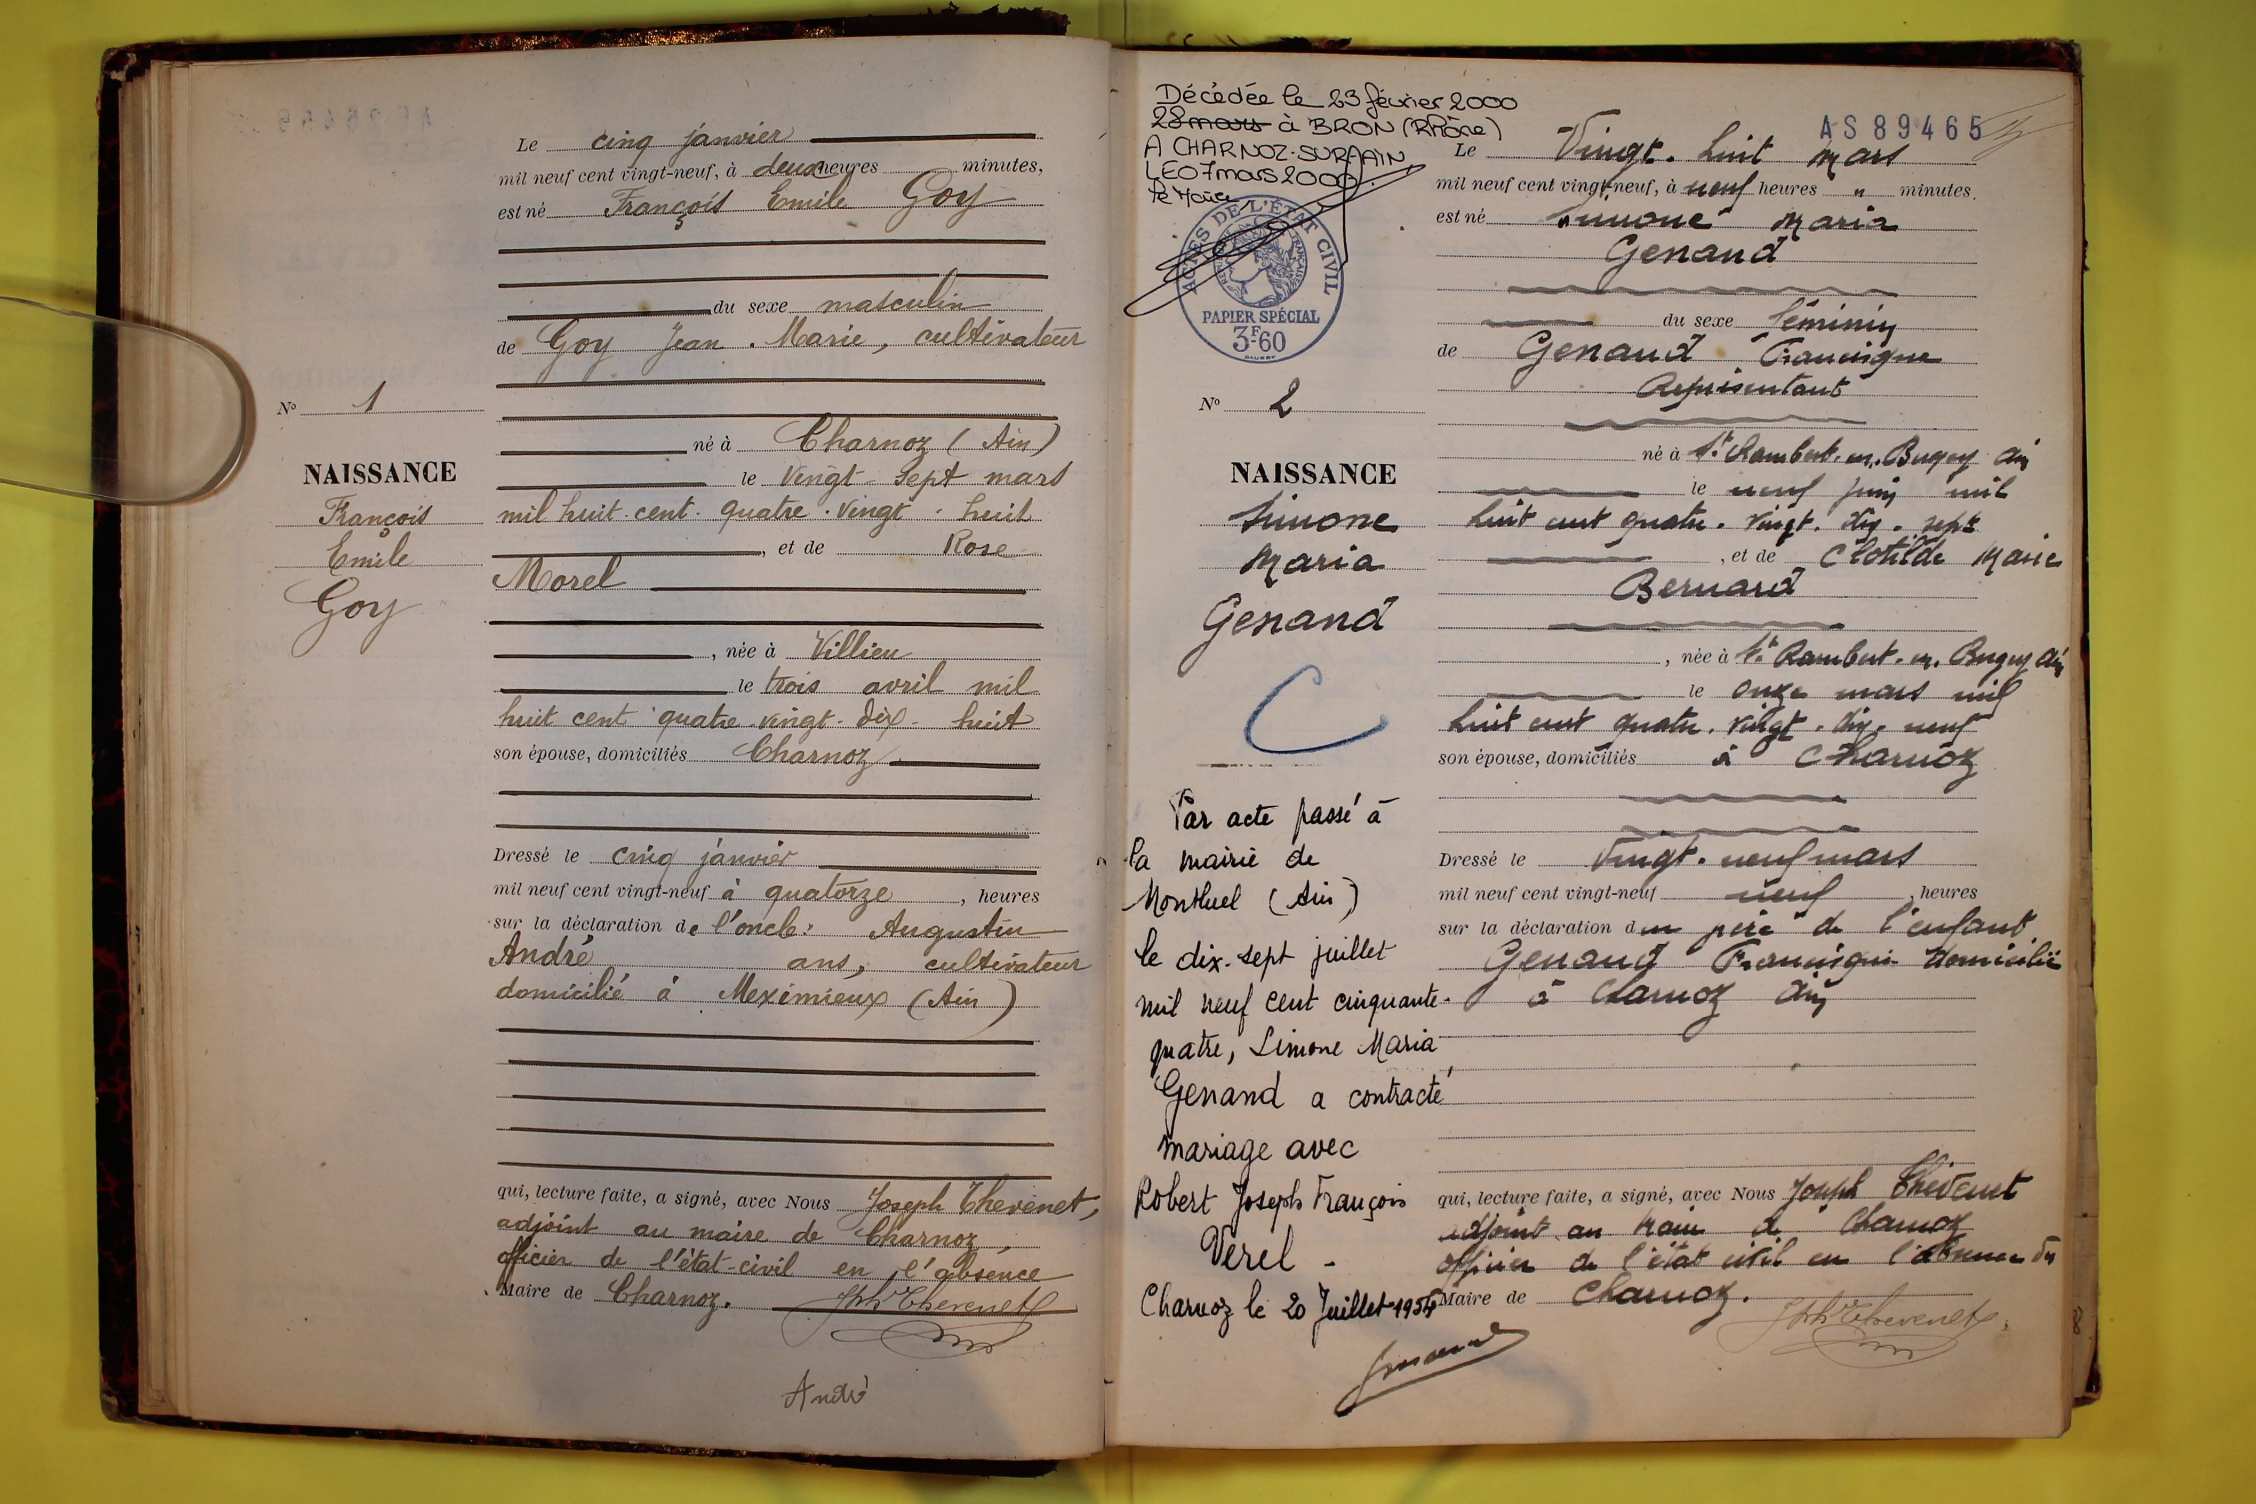 Le cinq janvier
mil neuf cent vingt-neuf, à deux heures minutes,
est né François Emile Goy
du sexe masculin
de Goy Jean. Marie, cultivateur
N° 1
né à Charnoz (Ain)
NAISSANCE
le vingt-sept mars
François
mil huit. cent. quatre. vingt. huit
Emile
, et de Rose
Goy
Morel
, née à Villieu
le trois avril mil
huit cent quatre. vingt. dix- huit
son épouse, domiciliés Charnoz
Dressé le cinq janvier
mil neuf cent vingt-neuf à quatorze, heures
sur la déclaration de l'oncle: Augustin
André ans, cultivateur
domicilié à Meximieux (Ain)
qui, lecture faite, a signé, avec Nous Joseph Thevenet,
adjoint au maire de Charnoz,
officier de l'état-civil en l'absence
Maire de Charnoz. Jph Thevenet
André
Décédée le 23 février 2000
28 mars à BRON (Rhône)
A CHARNOZ-SUR-AIN
LE 07 mars 2000
Le Maire
ACTES DE L'ÉTAT CIVIL
PAPIER SPÉCIAL
3F.60
AS 89465
Le Vingt. huit mars
mil neuf cent vingt-neuf, à neuf heures " minutes.
est né Simone Maria
Genand
du sexe féminin
de Genand Francisque
Représentant
N° 2
né à St. Rambert. en. Bugey Ain
NAISSANCE
le neuf juin mil
Simone
huit cent quatre. vingt. dix. sept
Maria
, et de Clotilde Marie
Genand
Bernard
, née à St. Rambert. en. Bugey Ain
le onze mars mil
huit cent quatre. vingt. dix. neuf
son épouse, domiciliés à Charnoz
C
Dressé le vingt. neuf mars
mil neuf cent vingt-neuf neuf, heures
sur la déclaration du père de l'enfant
Genand Francisque domicilié
à Charnoz Ain
qui, lecture faite, a signé, avec Nous Joseph Thévenet
adjoint au maire de Charnoz
officier de l'état civil en l'absence du
Maire de Charnoz.
Jph Thevenet
Par acte passé à
la mairie de
Montluel (Ain)
le dix-sept juillet
mil neuf cent cinquante-
quatre, Simone Maria
Genand a contracté
mariage avec
Robert Joseph François
Verel -
Charnoz le 20 Juillet 1954
8